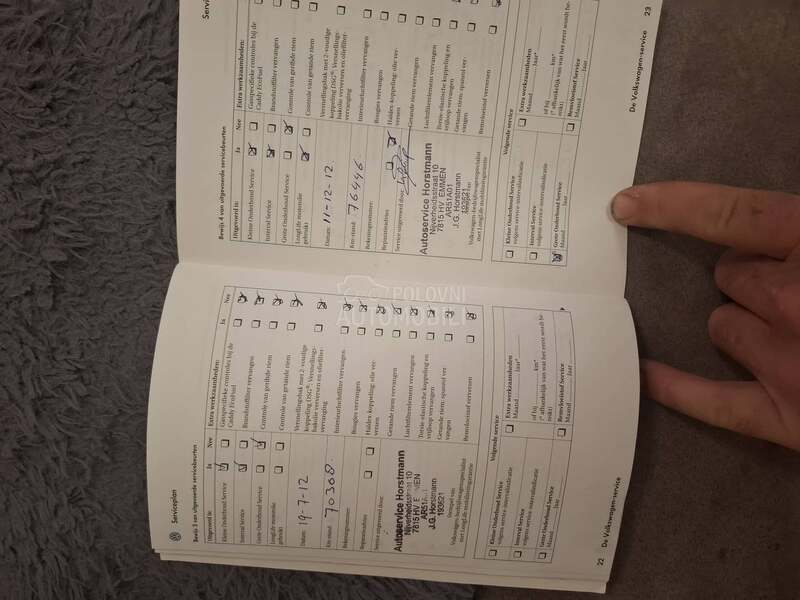 Serviceplan
Bewijs 3 van uitgevoerde servicebeurten
Uitgevoerd is:
Ja Nee
Kleine Onderhoud Service
Interval Service
Grote Onderhoud Service
LongLife motorolie
gebruikt
Datum: 19-7-12
Km-stand: 70368
Rekeningnummer:
Reparatieadvies
Service uitgevoerd door:
Autoservice Horstmann
Nijverheidsstraat 10
7815 HV EMMEN
J.G. Horstmann
193621
Stempel van
Volkswagen-bedrijfswagenspecialist
met LongLife mobiliteitsgarantie
Extra werkzaamheden:
Ja Nee
Gasspecifieke controles bij de
Caddy EcoFuel
Brandstoffilter vervangen
Controle van geribde riem
Controle van getande riem
Versnellingsbak met 2-voudige
koppeling DSG®: Versnellings-
bakolie verversen en oliefilter-
vervanging
Interieurluchtfilter vervangen
Bougies vervangen
Haldex-koppeling: olie ver-
versen
Getande riem vervangen
Luchtfilterelement vervangen
Getande riem: spanrol ver-
vangen
Remvloeistof verversen
Volgende service
Kleine Onderhoud Service
volgens service-intervalindicatie
Interval Service
volgens service-intervalindicatie
Grote Onderhoud Service
Maand ........ Jaar
Extra werkzaamheden
Maand ........ Jaar*
of bij ........ km*
(* afhankelijk van wat het eerst wordt be-
reikt)
Remvloeistof Service
Maand ........ Jaar
22 De Volkswagen-service
Bewijs 4 van uitgevoerde servicebeurten
Uitgevoerd is:
Ja Nee
Kleine Onderhoud Service
Interval Service
Grote Onderhoud Service
LongLife motorolie
gebruikt
Datum: 11-12-12
Km-stand: 76446
Rekeningnummer:
Reparatieadvies
Service uitgevoerd door:
Autoservice Horstmann
Nijverheidsstraat 10
7815 HV EMMEN
AR51A01
J.G. Horstmann
193621
Stempel van
Volkswagen-bedrijfswagenspecialist
met LongLife mobiliteitsgarantie
Extra werkzaamheden:
Gasspecifieke controles bij de
Caddy EcoFuel
Brandstoffilter vervangen
Controle van geribde riem
Controle van getande riem
Versnellingsbak met 2-voudige
koppeling DSG®: Versnellings-
bakolie verversen en oliefilter-
vervanging
Interieurluchtfilter vervangen
Bougies vervangen
Haldex-koppeling: olie ver-
versen
Getande riem vervangen
Luchtfilterelement vervangen
Getande riem: spanrol ver-
vangen
Remvloeistof verversen
Volgende service
Kleine Onderhoud Service
volgens service-intervalindicatie
Interval Service
volgens service-intervalindicatie
Grote Onderhoud Service
Maand ........ Jaar
Extra werkzaamheden
Maand ........ Jaar*
of bij ........ km*
(* afhankelijk van wat het eerst wordt be-
reikt)
Remvloeistof Service
Maand ........ Jaar
De Volkswagen-service 23
POLOVNI
AUTOMOBILI